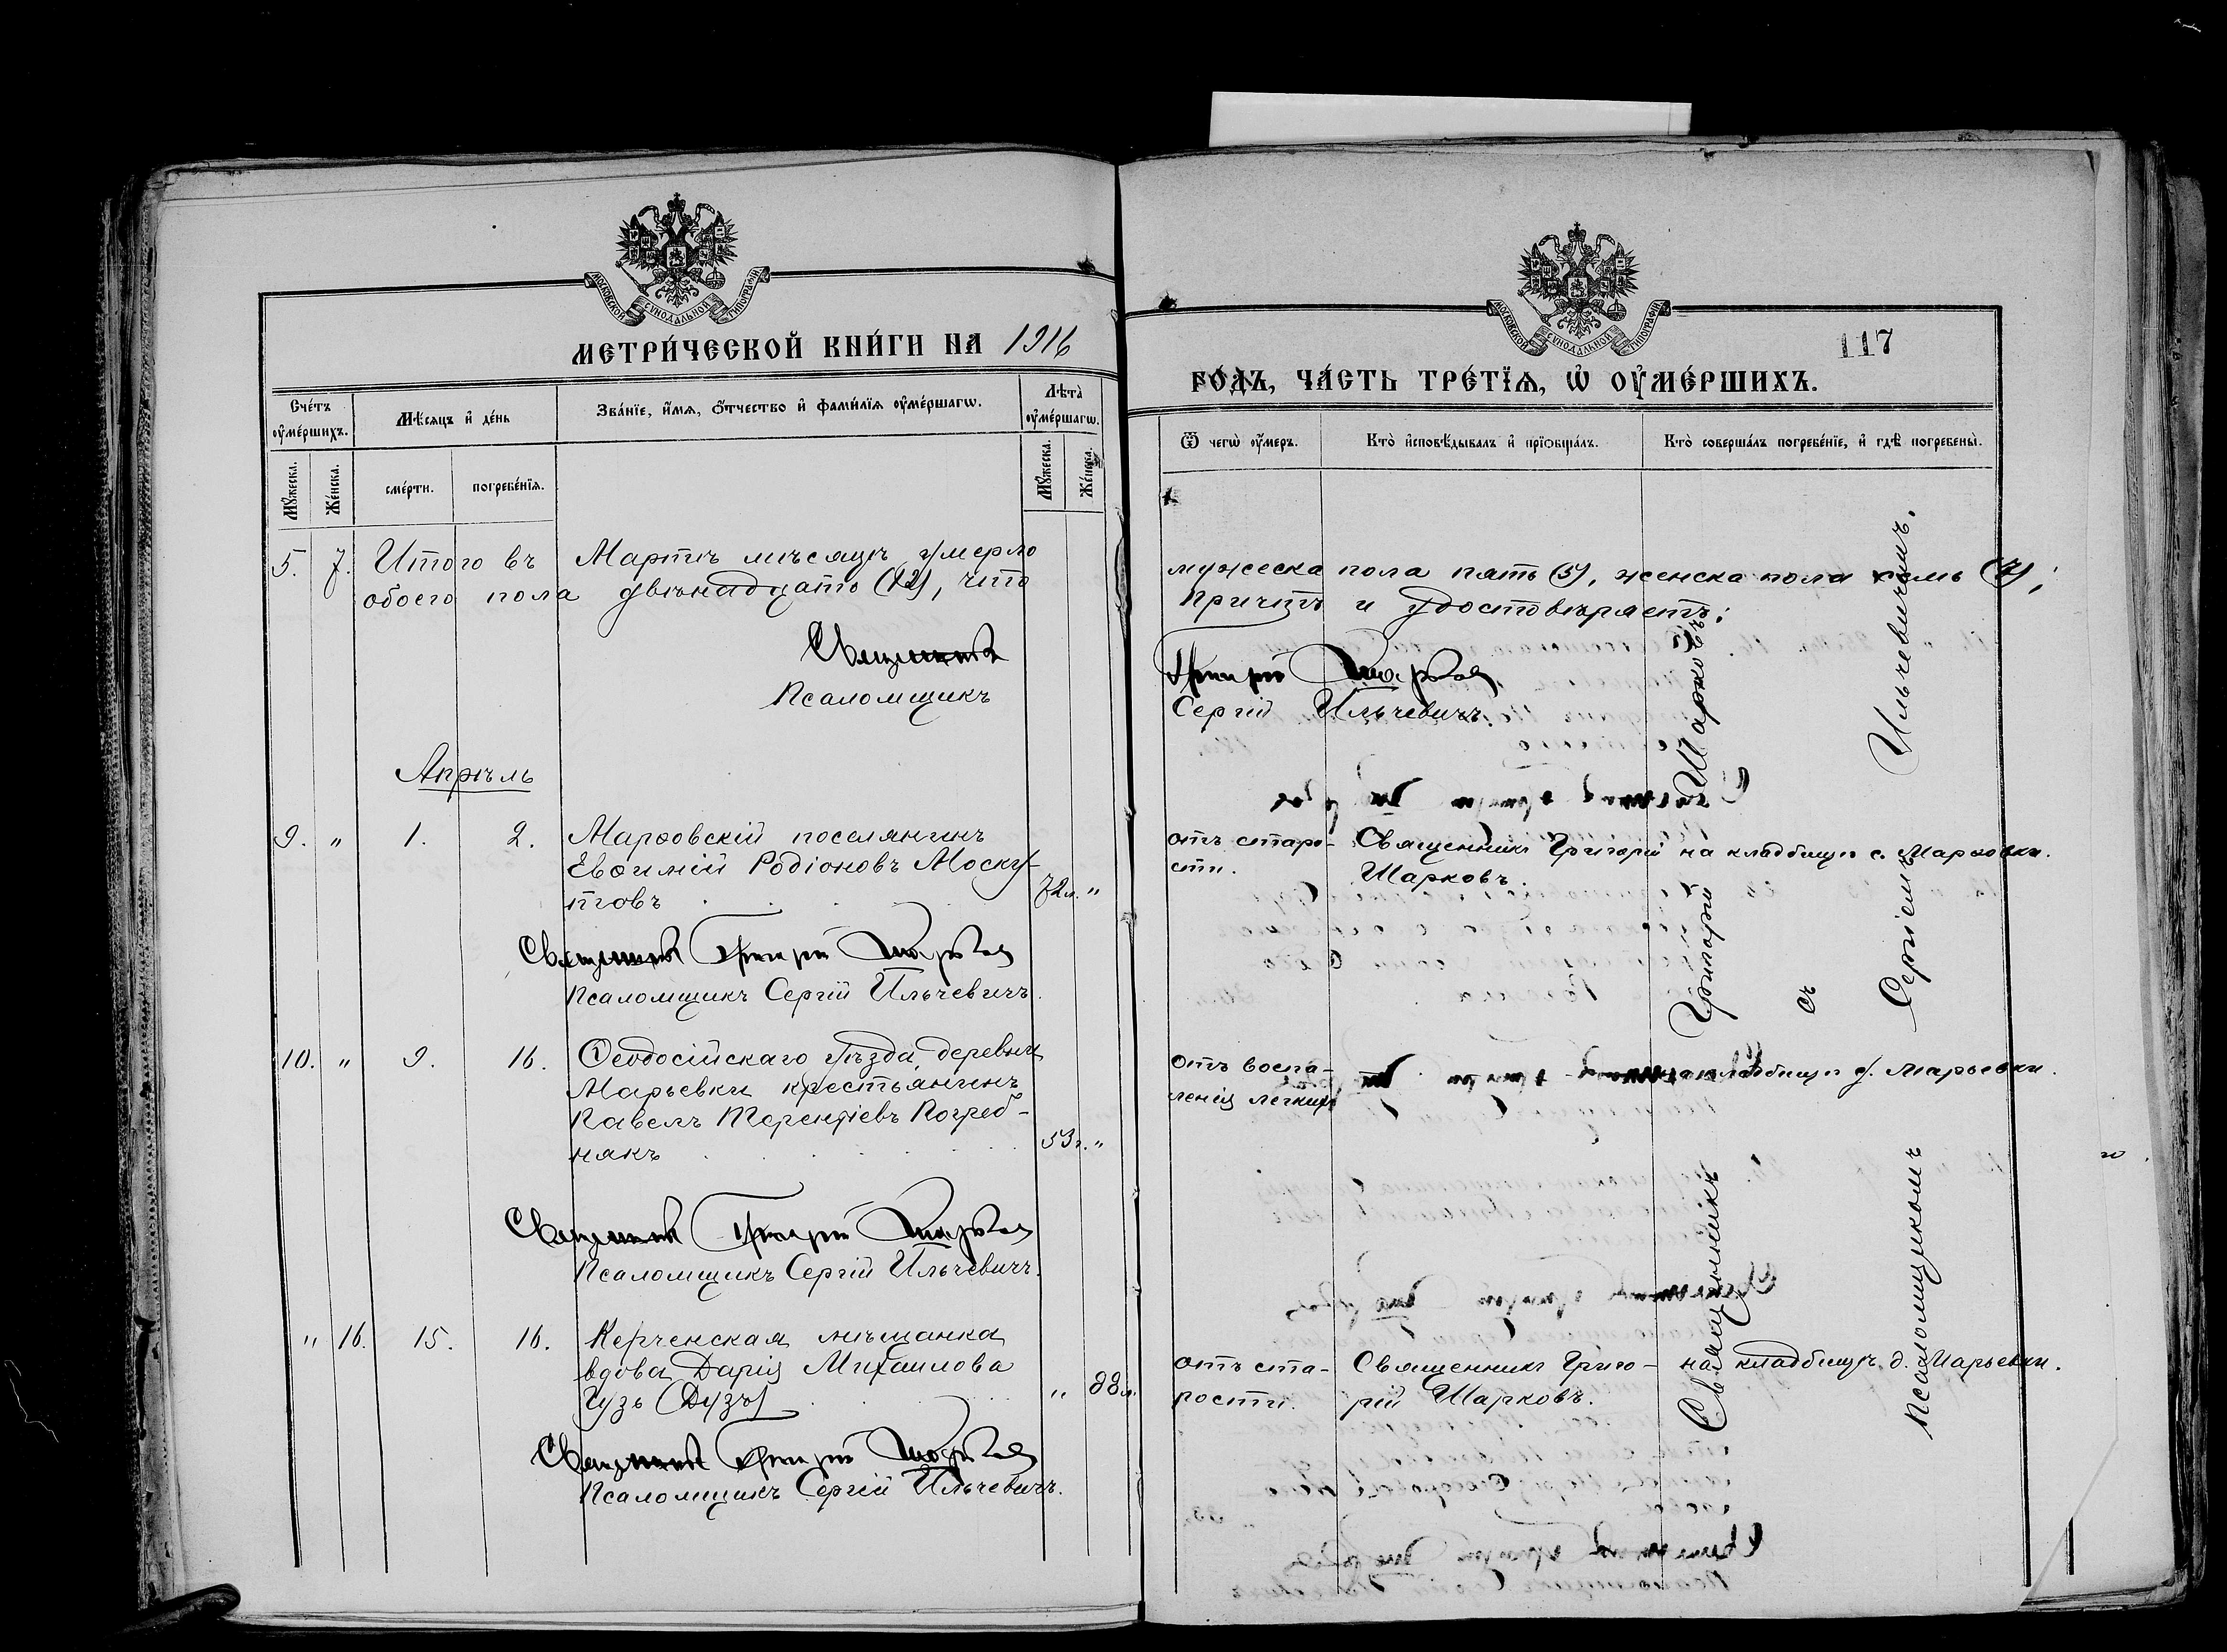 МОСКОВСКОЙ СѴНОДАЛЬНОЙ ТИПОГРАФІИ
МЕТРИ́ЧЕСКОЙ КНИ́ГИ НА 1916
Сче́тъ оу҆ме́ршихъ.
Мѣ́сяцъ и҆ де́нь
Зва́нїе, и҆́мя, ѻ҆́тчество и҆ фами́лїя оу҆ме́ршагѡ.
Лѣта̀ оу҆ме́ршагѡ.
Мꙋ́жеска.
Же́нска.
сме́рти.
погребе́нїя.
Мꙋ́жеска.
Же́нска.
5. 7. Итого въ Мартѣ мѣсяцѣ умерло
обоего пола двѣнадцать (12), что
Священникъ
Псаломщикъ
Апрѣль
9. " 1. 2. Марѳовскій поселянинъ
Евѳимій Родіоновъ Моску-
товъ 72л. "
Священникъ Григорій Шарковъ
Псаломщикъ Сергій Ильчевичъ.
10. " 9. 16. Ѳеодосійскаго уѣзда, деревни
Марьевки крестьянинъ
Павелъ Терентіевъ Погреб-
някъ 53г. "
Священникъ Григорій Шарковъ
Псаломщикъ Сергій Ильчевичъ.
" 16. 15. 16. Керченская мѣщанка
вдова Дарія Михаилова
Гузь (Дузь) " 88л.
Священникъ Григорій Шарковъ
Псаломщикъ Сергій Ильчевичъ.
МОСКОВСКОЙ СѴНОДАЛЬНОЙ ТИПОГРАФІИ
117
ГО́ДЪ, ЧА́СТЬ ТРЕ́ТЇѦ, Ѡ҆ ОУ҆МЕ́РШИХЪ.
Ѿ чегѡ̀ оу҆́меръ.
Кто̀ и҆сповѣ́дывалъ и҆ прїѻбща́лъ.
Кто̀ соверша́лъ погребе́нїе, и҆ гдѣ̀ погребены̀.
мужеска пола пять (5), женска пола семь (7);
причтъ и удостовѣряетъ:
Григорій Шарковъ
Сергій Ильчевичъ.
отъ старо- Священникъ Григорій на кладбищѣ с. Марѳовки.
сти. Шарковъ.
отъ воспа- на кладбищѣ д. Марьевки.
ленія легкихъ
отъ ста- Священникъ Григо- на кладбищѣ д. Марьевки.
рости. рій Шарковъ.
Священникъ Григорій Шарковъ
съ
Псаломщикомъ Сергіемъ Ильчевичемъ.